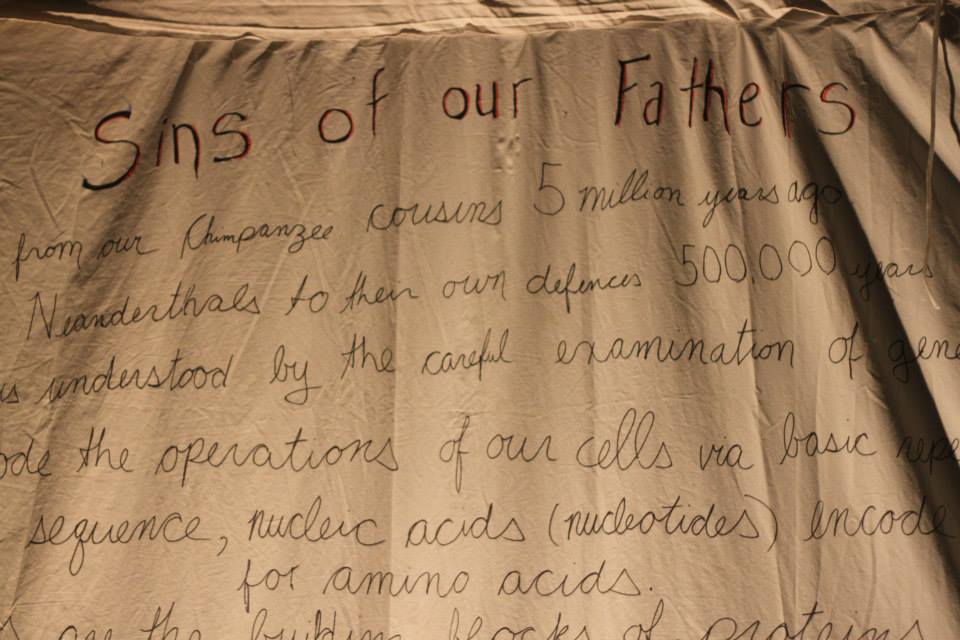 Sins of our Fathers
from our Chimpanzee cousins 5 million years ago
Neanderthals to their own defences 500,000 years
is understood by the careful examination of gene
ode the operations of our cells via basic repe
sequence, nucleic acids (nucleotides) encode
for amino acids.
are the building blocks of proteins